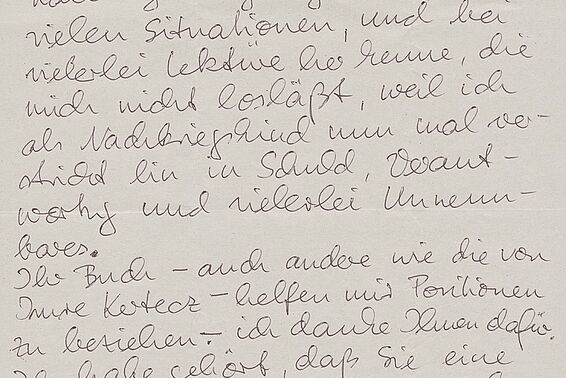 vielen Situationen, und bei
vielerlei Lektüre her kenne, die
mich nicht losläßt, weil ich
als Nachkriegskind nun mal ver-
strickt bin in Schuld, Verant-
wortg und vielerlei Unnenn-
bares.
Ihr Buch – auch andere wie die von
Imre Kertecz – helfen mir Positionen
zu beziehen – ich danke Ihnen dafür.
Ich habe gehört, daß Sie eine